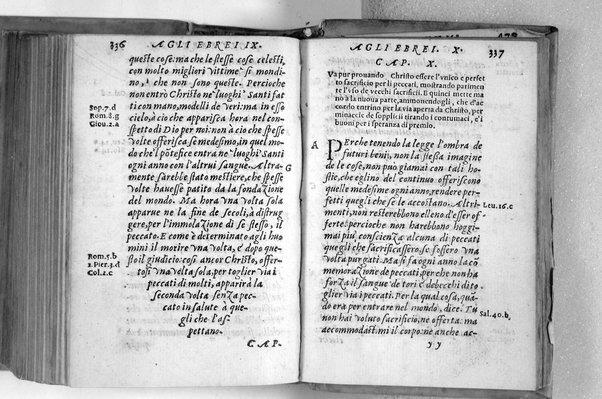 336
AGLI EBREI IX.
queste cose: ma che le stesse cose celesti,
con molto migliori vittime si mondi-
no, che non sono queste. Percioche
non entrò Christo ne' luoghi Santi fat
ti con mano, modelli de' veri: ma in esso
cielo, à cio che apparisca hora nel con-
spetto di Dio per noi: non à cio che spesse
volte offerisca se medesimo, in quel mo-
do che'l põtefice entra ne' luoghi Santi
ogni anno con l'altrui sangue. Altra-
mente sarebbe stato mestiere, che spesse
volte hauesse patito da la fondazione
del mondo. Ma hora vna volta sola
apparue ne la fine de secoli, à distrug
gere, per l'immolazione di se stesso, il
peccato. E come è determinato agli huo
mini il morire vna volta, e dopo que-
sto il giudicio: così ancor Christo, offer-
tosi vna volta sola, per toglier via i
peccati di molti, apparirà la
seconda volta senza pec-
cato in salute à que-
gli che l'as-
pettano.
CAP.
Sop. 7. d
Rom. 8. g
Giou. 2. a
Rom. 5. b
2 Pier. 3. d
Col. 2. c
G
AGLI EBREI. X.
337
CAP. X.
Va pur prouando Christo essere l'vnico e perfet
to sacrificio per li peccati, mostrando parimen
te l'vso de vecchi sacrifici. E quinci mette ma
no à la nuoua parte, ammonendogli, che d'ac
cordo entrino per la via aperta da Christo, per
minacce de supplicii tirando i contumaci, e i
buoni per isperanza di premio.
A
PErche tenendo la legge l'ombra de
futuri beni, non la stessa imagine
de le cose, non può giamai con tali ho-
stie, che eglino del continuo offeriscono
quelle medesime ogni anno, rendere per-
fetti quegli che se le accostano. Altri-
menti, non resterebbono elleno d'esser of
ferte? percioche non harebbono hoggi-
mai più conscienza alcuna di peccati
quegli che sacrificassero, se fossero vna
volta purgati. Ma si fa ogni anno la cõ
memorazione de peccati, perche non ha
forza il sangue de tori e de becchi di to
glier via i peccati. Per la qual cosa, quã
do era per entrare nel mondo, dice. Tu
non hai voluto sacrificio, ne offerta: ma
accommodastimi il corpo: ne anche ac-
yy
Leu. 16. c
Sal. 40. b.